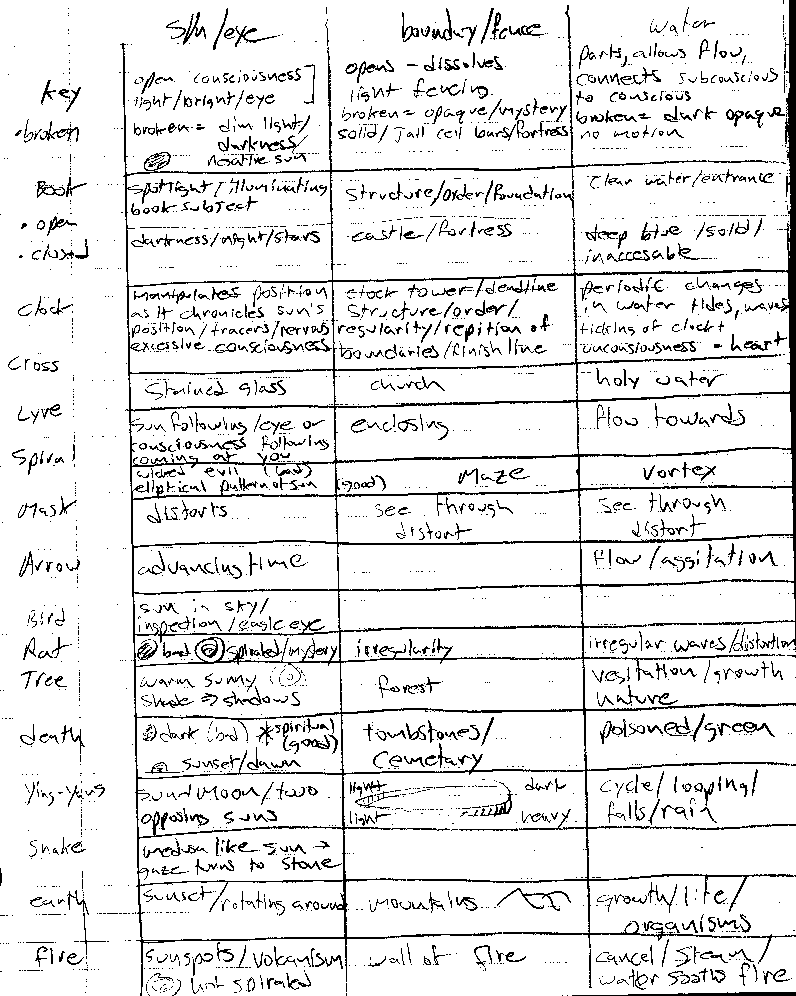 sun/eye boundary/fence water
Key
open consciousness
light/bright/eye
opens – dissolves
light fencing
parts, allows flow,
connects subconscious
to conscious
• broken
broken = dim light/
darkness/
negative sun
broken = opaque/mystery
solid/Jail cell bars/fortress
broken = dark opaque
no motion
Book
• open
spotlight/illuminating
book subject
Structure/order/foundation
Clear water/entrance
• closed
darkness/night/stars
castle/fortress
deep blue/solid/
inaccesable
Clock
Manipulates position
as it chronicles sun's
position/tracers/nervous
excessive consciousness
clock tower/deadline
Structure/order/
regularity/repition of
boundaries/finish line
periodic changes
in water tides, waves
ticking of clock +
unconsiousness = heart
Cross
Stained glass
church
holy water
Lyre
sun following/eye or
consciousness following
coming at you
enclosing
flow towards
Spiral
wicked evil (bad)
elliptical pattern of sun (good)
Maze
Vortex
Mask
distorts
see through
distort
See through
distort
Arrow
advancing time
flow/aggitation
Bird
sun in sky/
inspection/eagle eye
Rat
bad spiraled/mystery
irregularity
irregular waves/distortion
Tree
warm sunny
shade ⇒ shadows
forest
vegitation/growth
nature
death
dark (bad) *spiritual
(good)
sunset/dawn
tombstones/
Cemetary
poisoned/green
Ying-Yang
sun & moon/two
opposing suns
light dark
light heavy
cycle/looping/
falls/rain
Snake
medusa like sun →
gaze turns to stone
earth
sunset/rotating around
mountains
growth/life/
organisms
fire
sunspots/volcanism
hot spiraled
wall of fire
cancel/Steam/
water sooths fire